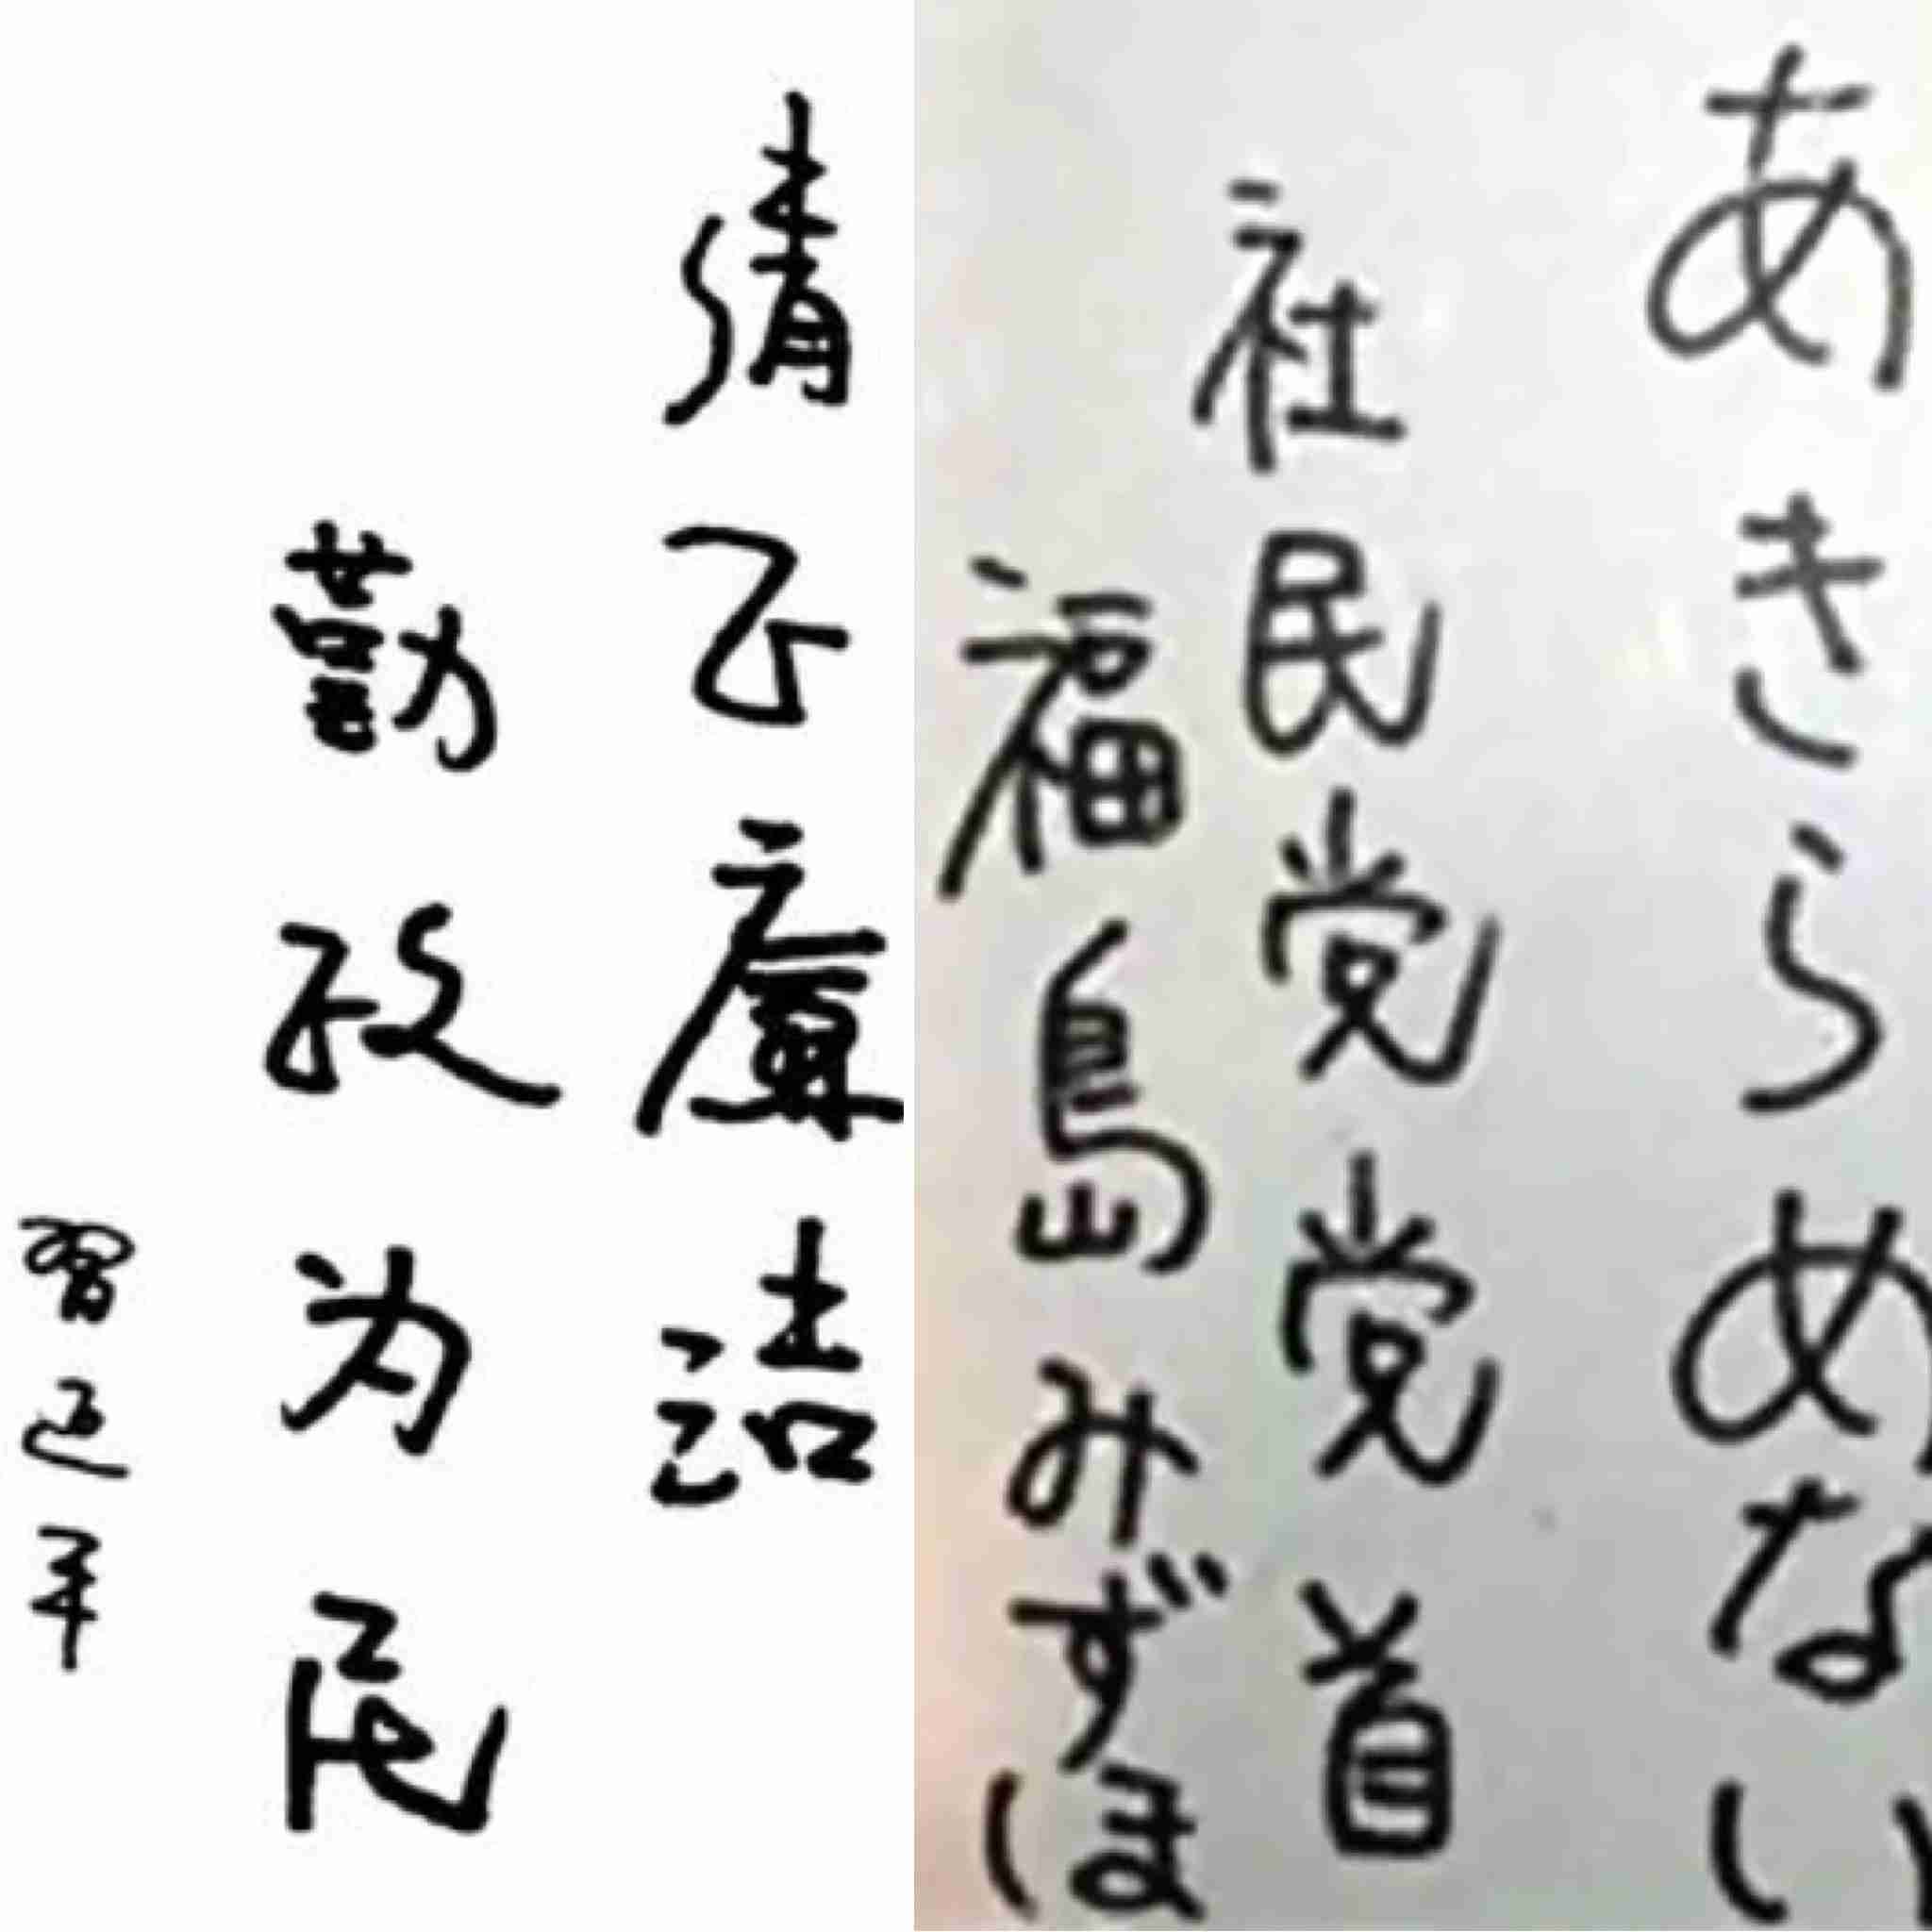 清正廉洁
勤政为民
習近平
あきらめない
社民党党首
福島みずほ